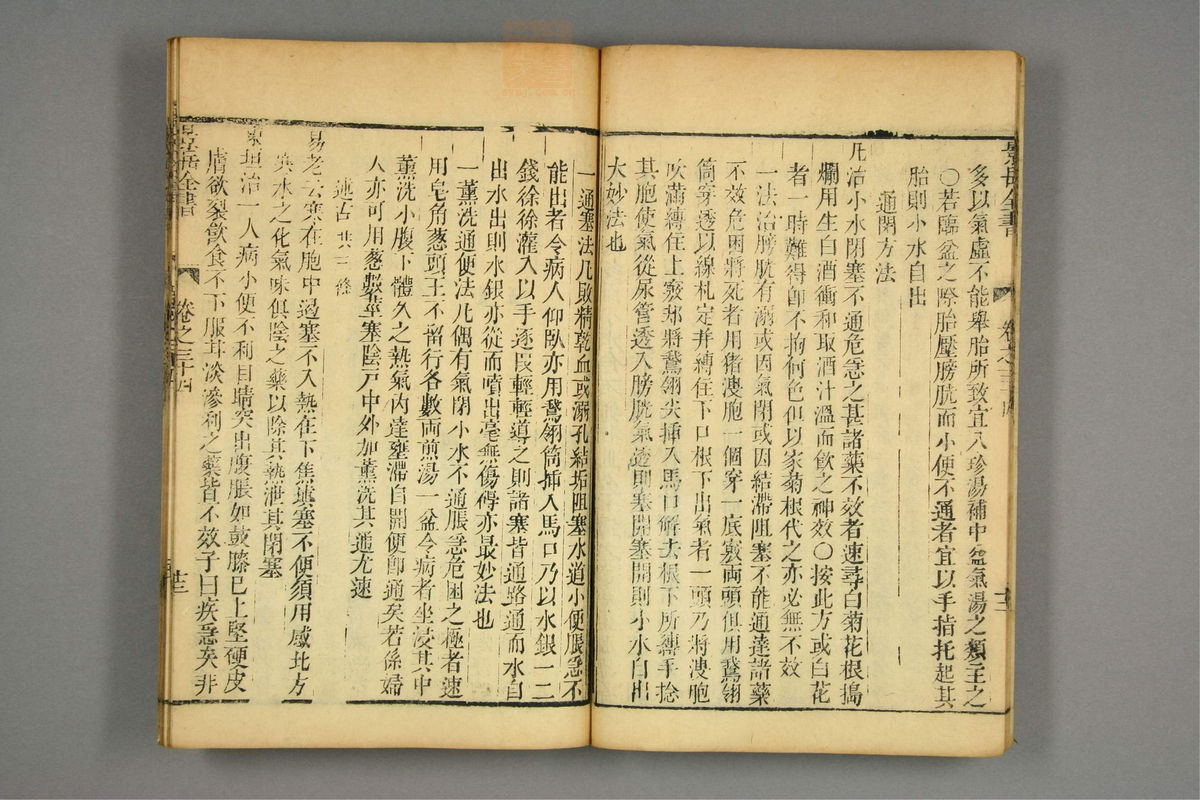 景岳全書
卷之三十四
多以氣虛不能舉胎所致宜八珍湯補中益氣湯之類主之
〇若臨盆之際胎壓膀胱而小便不通者宜以手指托起其
胎則小水自出
通閉方法
凡治小水閉塞不通危急之甚諸藥不效者速尋白菊花根搗
爛用生白酒衝和取酒汁溫而飲之神效〇按此方或白花
者一時難得卽不拘何色但以家菊根代之亦必無不效
一法治膀胱有溺或因氣閉或因結滯阻塞不能通達諸藥
不效危困將死者用猪溲胞一個穿一底竅兩頭俱用鵞翎
筒穿透以線札定并縛住下口根下出氣者一頭乃將溲胞
吹滿縛住上竅却將鵞翎尖揷入馬口解去根下所縛手捻
其胞使氣從尿管透入膀胱氣透則塞開塞開則小水自出
大妙法也
一通塞法凡敗精乾血或溺孔結垢阻塞水道小便脹急不
能出者令病人仰臥亦用鵞翎筒揷入馬口乃以水銀一二
錢徐徐灌入以手逐段輕輕導之則諸塞皆通路通而水自
出水出則水銀亦從而噴出毫無傷碍亦最妙法也
一薰洗通便法凡偶有氣閉小水不通脹急危困之極者速
用皂角葱頭王不留行各數兩煎湯一盆令病者坐浸其中
薰洗小腹下體久之熱氣內達壅滯自開便卽通矣若係婦
人亦可用葱數莖塞陰戶中外加薰洗其通尤速
述古共三條
易老云寒在胞中遏塞不入熱在下焦塡塞不便須用感北方
寒水之化氣味俱陰之藥以除其熱泄其閉塞
東垣治一人病小便不利目睛突出腹脹如鼓膝已上堅硬皮
膚欲裂飮食不下服甘淡滲利之藥皆不效予曰疾急矣非
景岳全書
卷之三十四